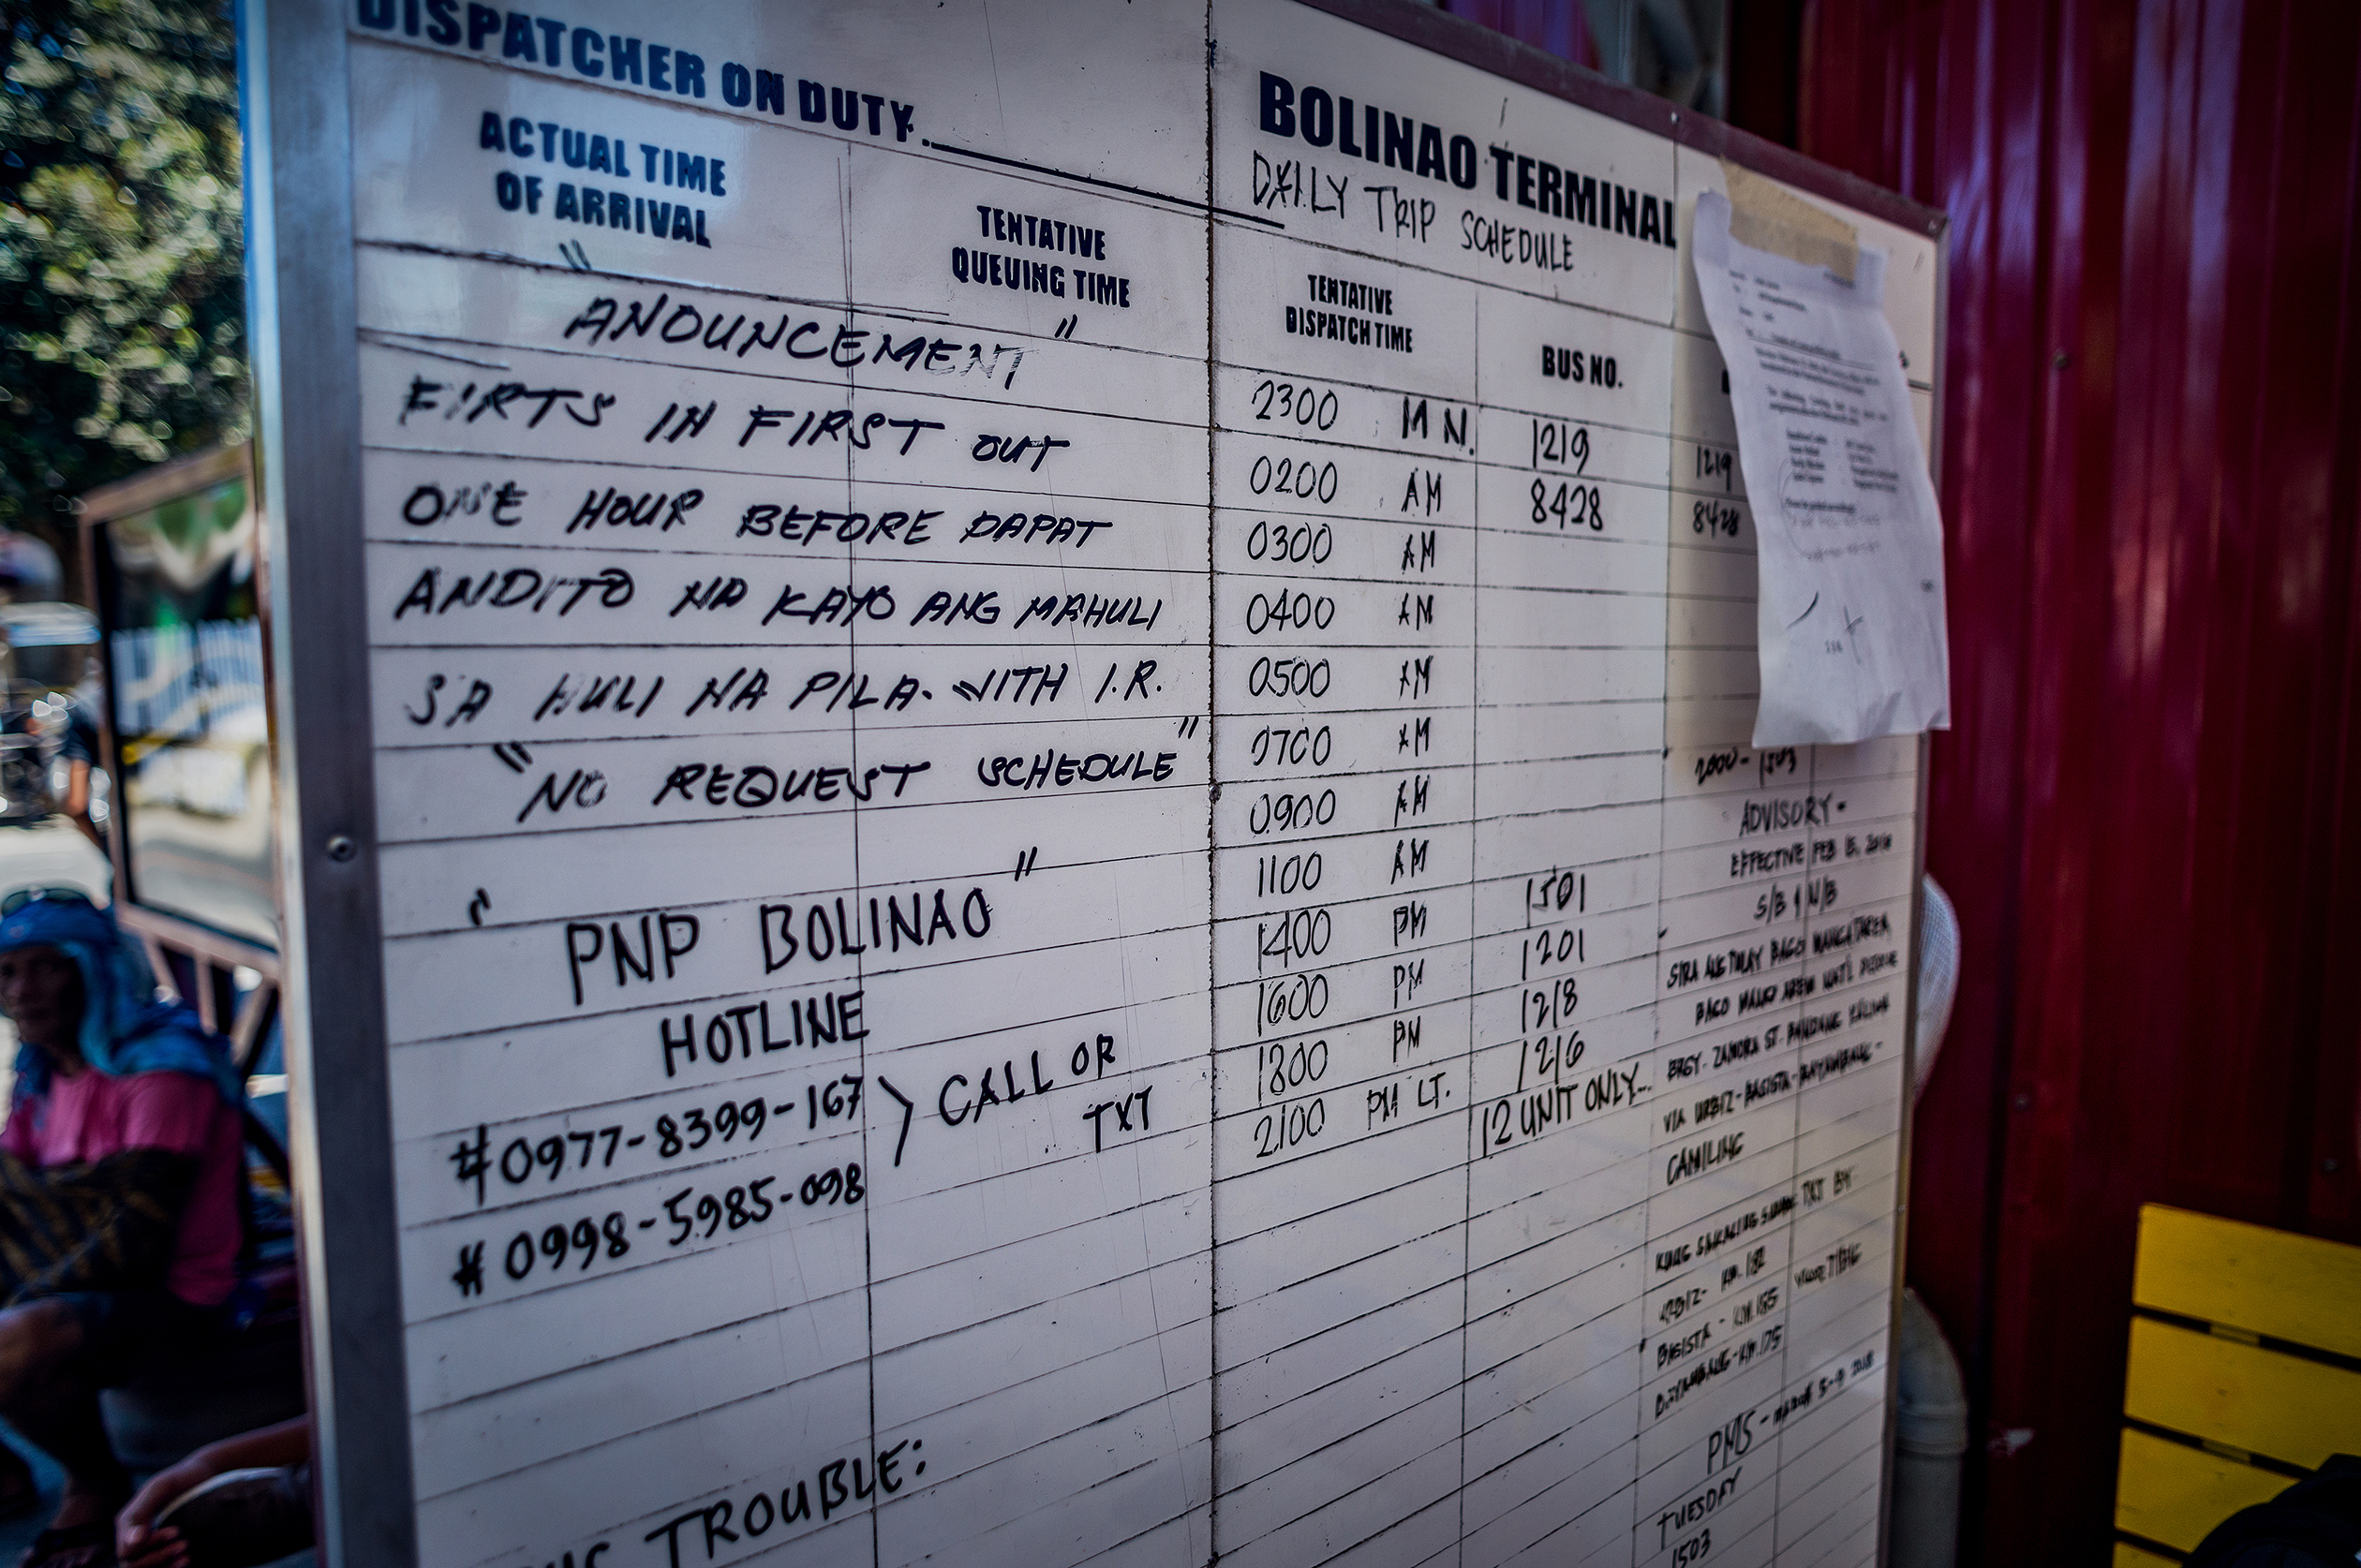 DISPATCHER ON DUTY.
ACTUAL TIME
OF ARRIVAL
TENTATIVE
QUEUING TIME
"ANOUNCEMENT"
FIRTS IN FIRST OUT
ONE HOUR BEFORE DAPAT
ANDITO NA KAYO ANG MAHULI
SA HULI NA PILA. WITH I.R.
"NO REQUEST SCHEDULE"
"PNP BOLINAO"
HOTLINE
#0977-8399-167
#0998-5985-098
CALL OR
TXT
TROUBLE:
BOLINAO TERMINAL
DAILY TRIP SCHEDULE
TENTATIVE
DISPATCH TIME
BUS NO.
2300 MN. 1219 1219
0200 AM 8428 8428
0300 AM
0400 AM
0500 AM
0700 AM
0900 AM
1100 AM 1501
1400 PM 1201
1600 PM 1218
1800 PM 1216
2100 PM LT. 12 UNIT ONLY...
2000 - 1503
ADVISORY -
EFFECTIVE FEB
S/B & N/B
SIRA ANG TULAY BAGO MANGATAREM
BAGO
BRGY. ZAMORA ST.
VIA URBIZ-BASISTA-BAYAMBANG-
CAMILING
KUNG TXT BY
URBIZ- KM. 182
BASISTA - KM. 185
BAYAMBANG-KM. 175
PMS - MARCH 5-9 2018
TUESDAY
1503